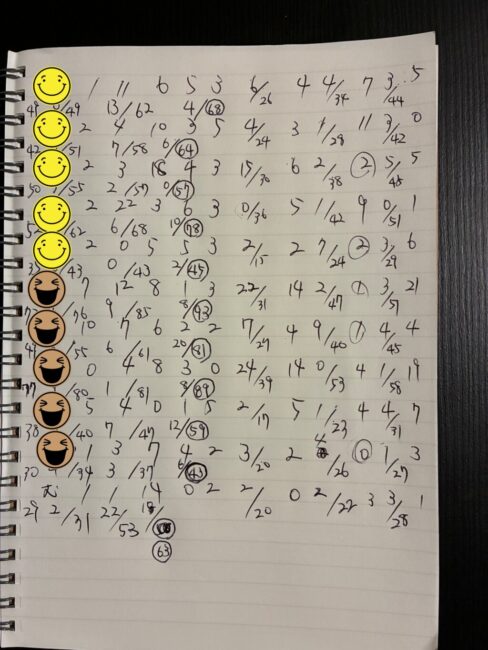 1 11 6 5 3 6/26 4 4/34 7 3/44 5
49 0/49 13/62 4/68
2 4 10 3 5 4/24 3 1/28 11 3/42 0
42 /51 7/58 6/64
2 3 4 3 15/30 6 2/38 2 5/45 5
50 /55 2/57 0/57
2 22 3 6 3 0/36 5 1/42 9 0/51 1
52 /62 6/68 10/78
2 0 5 5 3 2/15 2 7/24 2 3/29 6
/43 0/43 2/45
7 12 8 1 3 22/31 14 2/47 1 3/51 21
/76 9/85 8/93
10 7 6 2 2 7/27 4 9/40 1 4/45 4
/55 6/61 20/81
0 4 8 3 0 24/39 14 0/53 4 1/58 19
/80 1/81 8/89
5 4 0 1 5 2/17 5 1/23 4 4/31 7
38 /40 7/47 12/59
1 3 7 4 2 3/20 2 4/26 0 1/27 3
30 /34 3/37 6/43
む 1 1 14 0 2 2/20 0 2/22 3 3/28 1
29 2/31 22/53
63